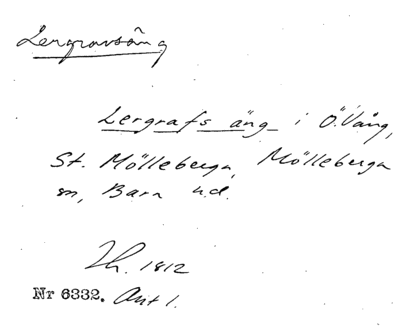 Lergravsäng
Lergrafs äng i Ö. Vång,
St. Mölleberga, Mölleberga
sn, Bara hd.
Lh. 1812
Nr 6332. Ant 1.